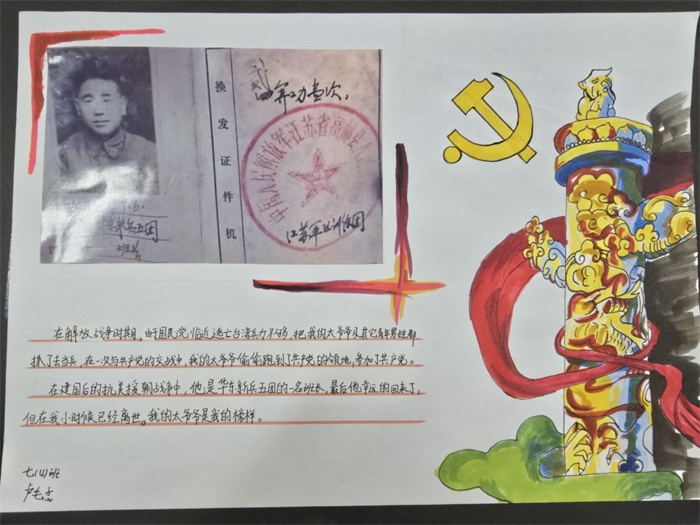 换发证件机
中国人民解放军江苏省高邮县人
在解放战争时期,由于国民党临近逃亡台湾兵力不够,把我的太爷爷及其它青年男姓都
抓了去当兵,在一次与共产党的交战中,我的太爷爷偷偷跑到了共产党的领地,参加了共产党。
在建国后的抗美援朝战争中,他是华东新兵五团的一名班长,最后他幸运的回来了,
但在我小时候已经离世。我的太爷爷是我的榜样。
七(4)班